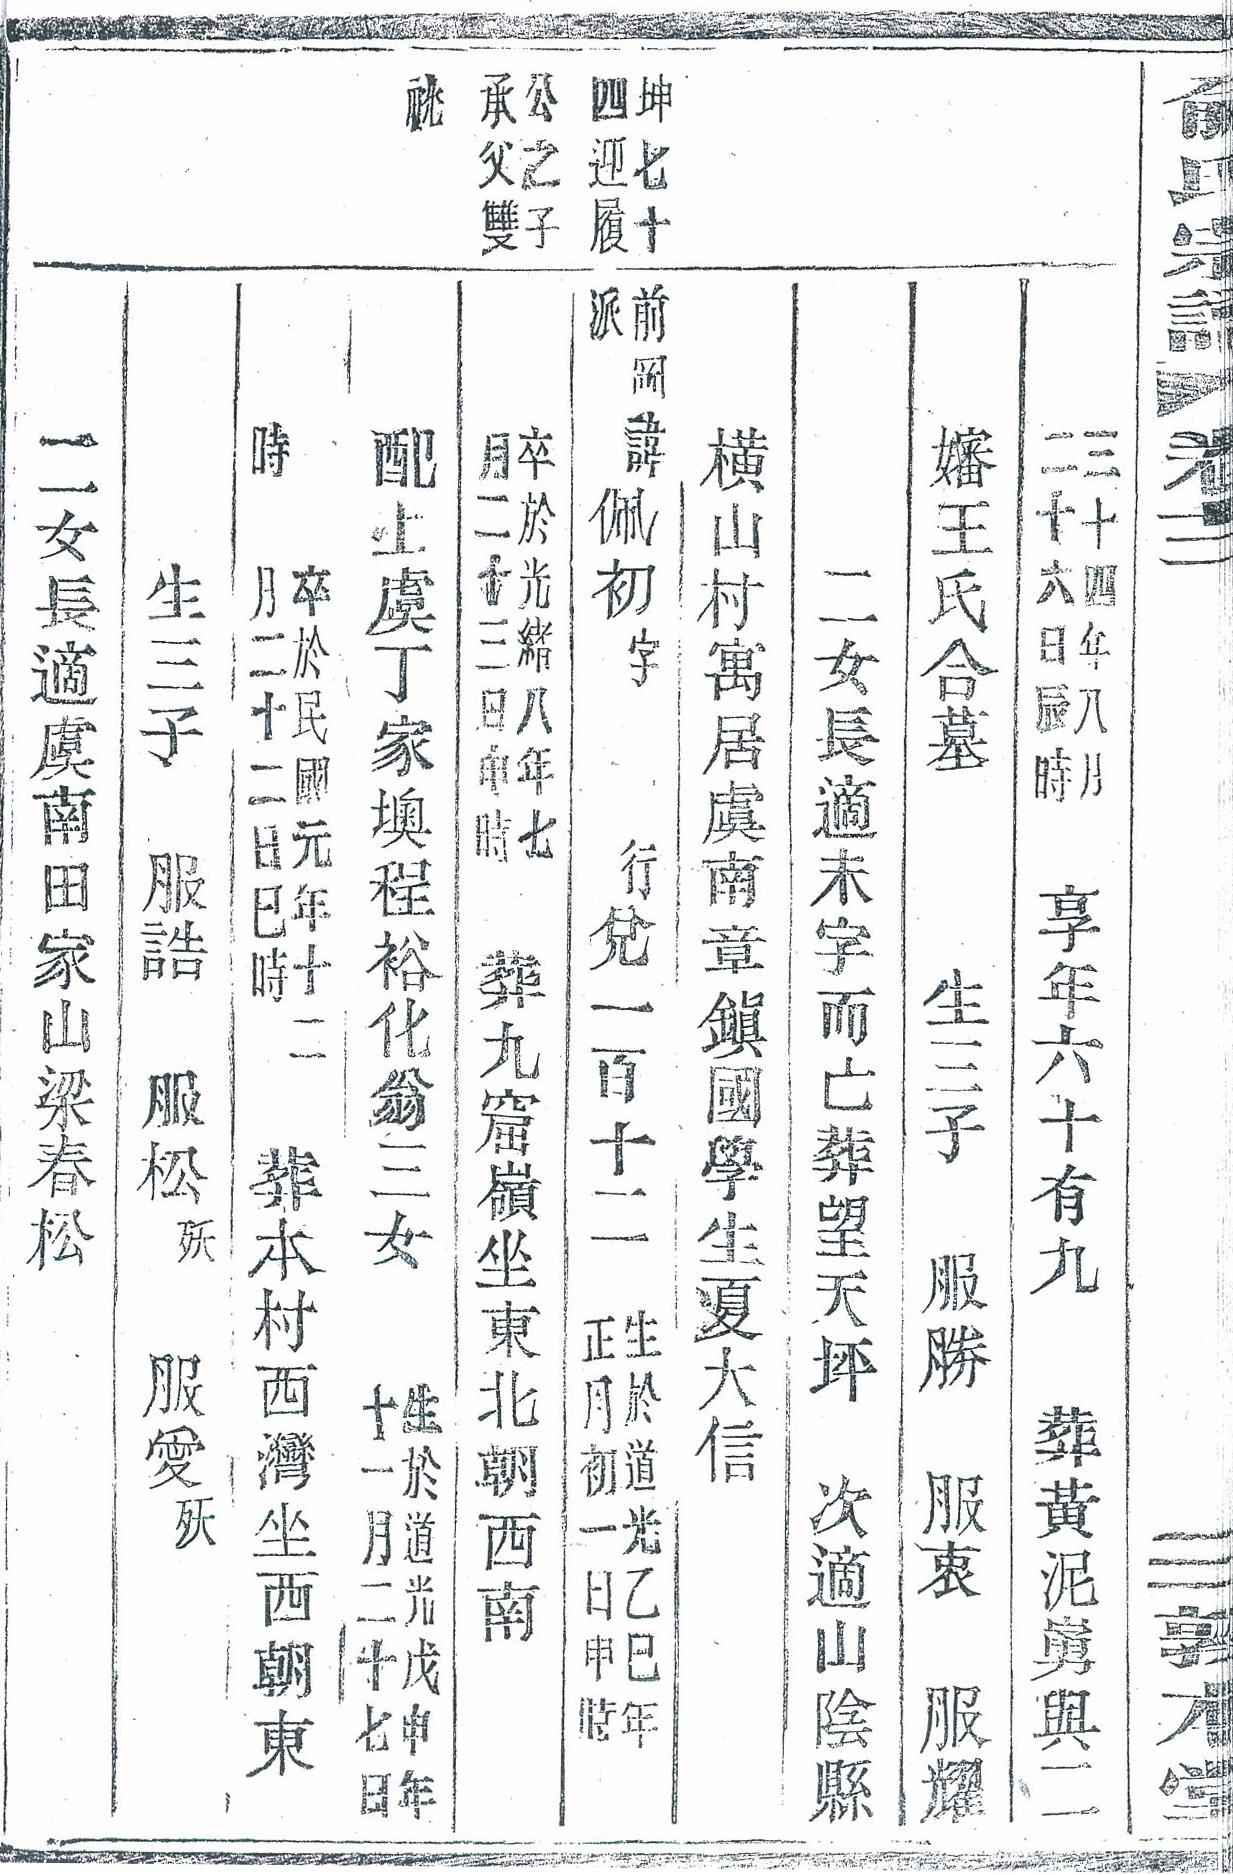 俞氏宗譜 卷三
敦本堂
三十四年八月
二十六日辰時
享年六十有九 葬黃泥嶴與二
嬸王氏合墓 生三子 服勝 服衷 服耀
二女長適未字而亡葬望天坪 次適山陰縣
橫山村寓居虞南章鎮國學生夏大信
坤七十
四迎履
公之子
承父雙
祧
前岡
派
諱佩初 字 行兌一百十二
生於道光乙巳年
正月初一日申時
卒於光緒八年七
月二十三日申時
葬九窟嶺坐東北朝西南
配上虞丁家墺程裕化翁三女
生於道光戊申年
十一月二十七日
時
卒於民國元年十二
月二十二日巳時
葬本村西灣坐西朝東
生三子 服誥 服松 殀 服愛 殀
二女長適虞南田家山梁春松